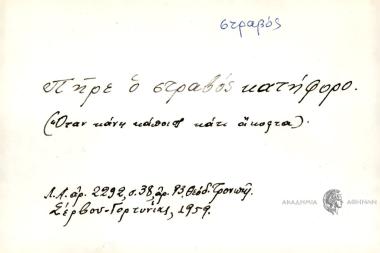 στραβός
Πῆρε ὁ στραβός κατήφορο.
(Ὅταν κάνῃ κάποιος κάτι ἄκοπα).
Λ.Α. ἀρ. 2292, σ. 38, ἀρ. 93, Θεόδ.
Σέρβου-Γορτυνίας, 1959.
ΑΚΑΔΗΜΙΑ ΑΘΗΝΩΝ